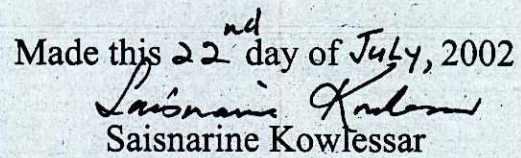 Made this 22nd day of July, 2002
Saisnarine Kowlessar
Saisnarine Kowlessar